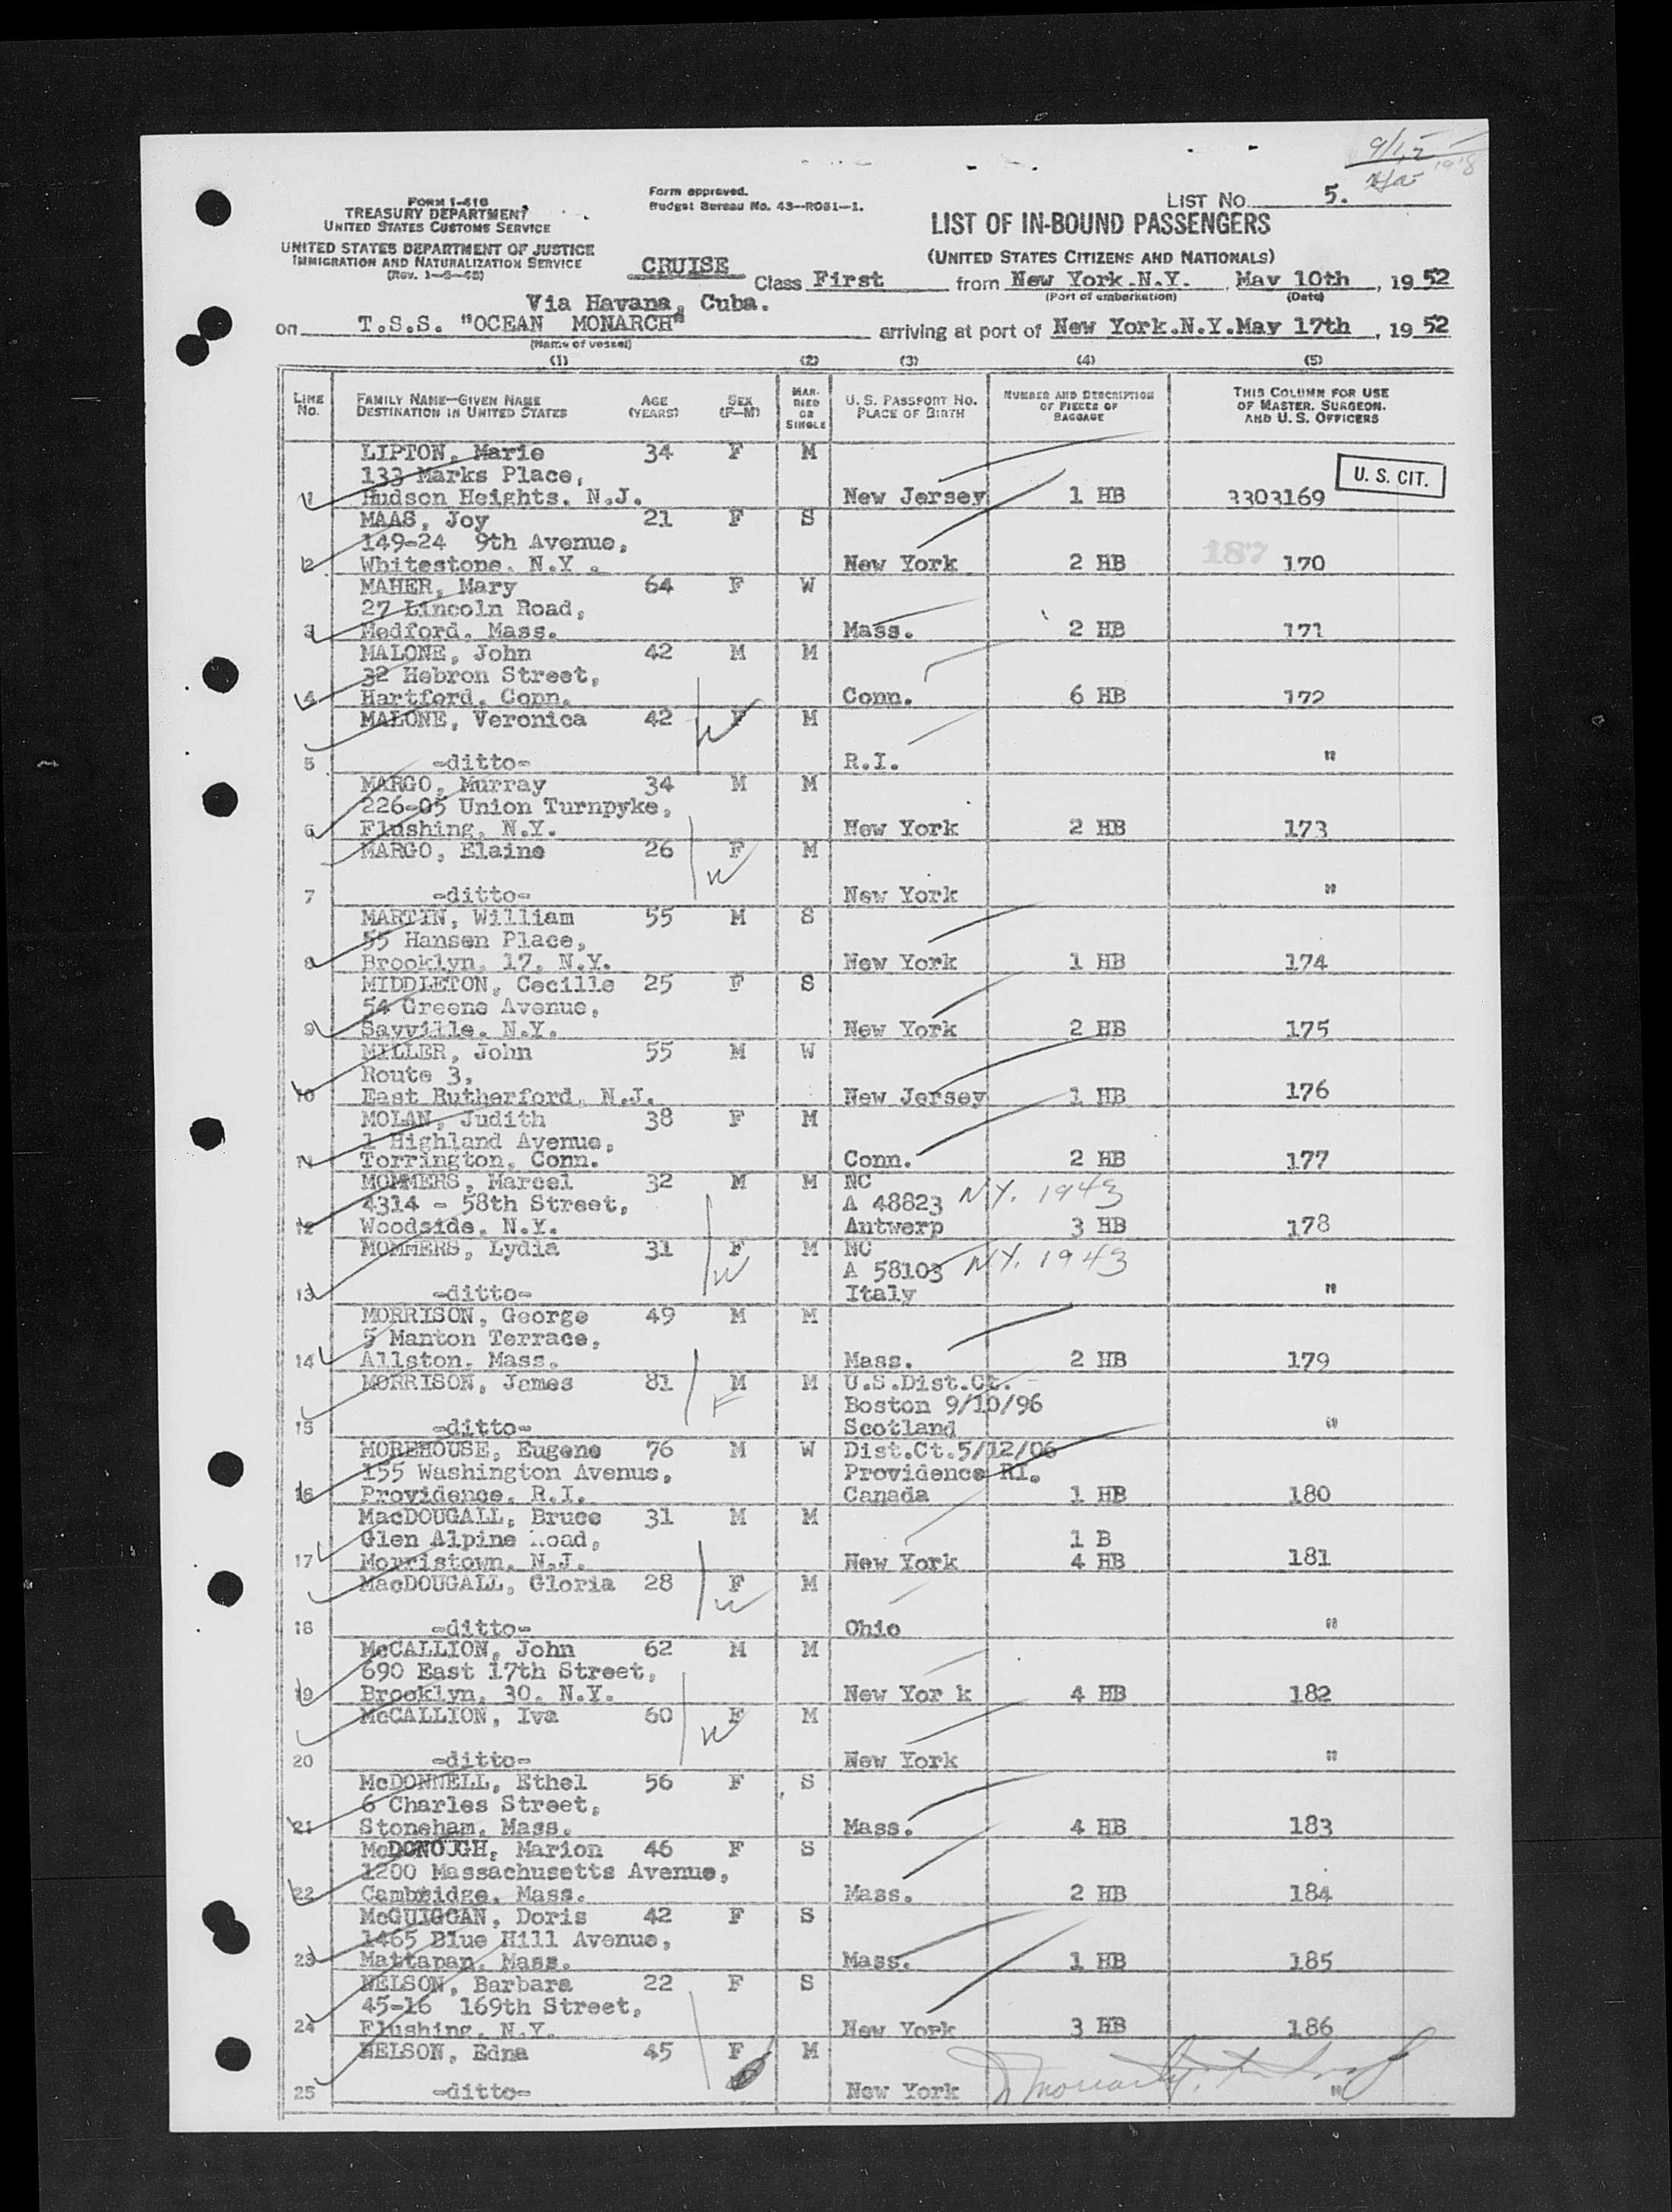 9/12
FORM I-416
TREASURY DEPARTMENT
UNITED STATES CUSTOMS SERVICE
UNITED STATES DEPARTMENT OF JUSTICE
IMMIGRATION AND NATURALIZATION SERVICE
(Rev. 1-5-45)
Form approved.
Budget Bureau No. 43-R061-1.
LIST No. 5.
LIST OF IN-BOUND PASSENGERS
(UNITED STATES CITIZENS AND NATIONALS)
CRUISE
Class First from New York.N.Y. , May 10th , 19 52
(Port of embarkation) (Date)
Via Havana, Cuba.
on T.S.S. "OCEAN MONARCH" arriving at port of New York.N.Y.May 17th , 19 52
(Name of vessel)
(1) (2) (3) (4) (5)
LINE No. FAMILY NAME—GIVEN NAME DESTINATION IN UNITED STATES AGE (YEARS) SEX (F—M) MARRIED OR SINGLE U. S. PASSPORT No. PLACE OF BIRTH NUMBER AND DESCRIPTION OF PIECES OF BAGGAGE THIS COLUMN FOR USE OF MASTER, SURGEON, AND U. S. OFFICERS
LIPTON, Marie 34 F M
133 Marks Place,
U. S. CIT.
1 Hudson Heights. N.J. New Jersey 1 HB 3303169
MAAS, Joy 21 F S
149-24 9th Avenue,
187
2 Whitestone. N.Y . New York 2 HB 170
MAHER, Mary 64 F W
27 Lincoln Road,
3 Medford. Mass. Mass. 2 HB 171
MALONE, John 42 M M
32 Hebron Street,
4 Hartford. Conn. Conn. 6 HB 172
MALONE, Veronica 42 F M
W
5 -ditto- R.I. "
MARGO, Murray 34 M M
226-05 Union Turnpyke,
6 Flushing, N.Y. New York 2 HB 173
MARGO, Elaine 26 F M
W
7 -ditto- New York "
MARTIN, William 55 M S
55 Hansen Place,
8 Brooklyn. 17. N.Y. New York 1 HB 174
MIDDLETON, Cecille 25 F S
54 Greene Avenue,
9 Sayville. N.Y. New York 2 HB 175
MILLER, John 55 M W
Route 3,
10 East Rutherford. N.J. New Jersey 1 HB 176
MOLAN, Judith 38 F M
1 Highland Avenue,
11 Torrington, Conn. Conn. 2 HB 177
MOMMERS, Marcel 32 M M NC
4314 - 58th Street, A 48823 N.Y. 1943
12 Woodside. N.Y. Antwerp 3 HB 178
MOMMERS, Lydia 31 F M NC
W A 58103 N.Y. 1943
13 -ditto- Italy "
MORRISON, George 49 M M
5 Manton Terrace,
14 Allston. Mass. Mass. 2 HB 179
MORRISON, James 81 M M U.S.Dist.Ct.
F Boston 9/10/96
15 -ditto- Scotland "
MOREHOUSE, Eugene 76 M W Dist.Ct.5/12/06
155 Washington Avenus, Providence RI.
16 Providence. R.I. Canada 1 HB 180
MacDOUGALL, Bruce 31 M M
Glen Alpine Road, 1 B
17 Morristown. N.J. New York 4 HB 181
MacDOUGALL, Gloria 28 F M
W
18 -ditto- Ohio "
McCALLION, John 62 M M
690 East 17th Street,
19 Brooklyn. 30. N.Y. New Yor k 4 HB 182
McCALLION, Iva 60 F M
W
20 -ditto- New York "
McDONNELL, Ethel 56 F S
6 Charles Street,
21 Stoneham. Mass. Mass. 4 HB 183
McDONOUGH, Marion 46 F S
1200 Massachusetts Avenue,
22 Cambridge. Mass. Mass. 2 HB 184
McGUIGGAN, Doris 42 F S
1465 Blue Hill Avenue,
23 Mattapan. Mass. Mass. 1 HB 185
NELSON, Barbara 22 F S
45-16 169th Street,
24 Flushing. N.Y. New York 3 HB 186
NELSON, Edna 45 F M
25 -ditto- New York "